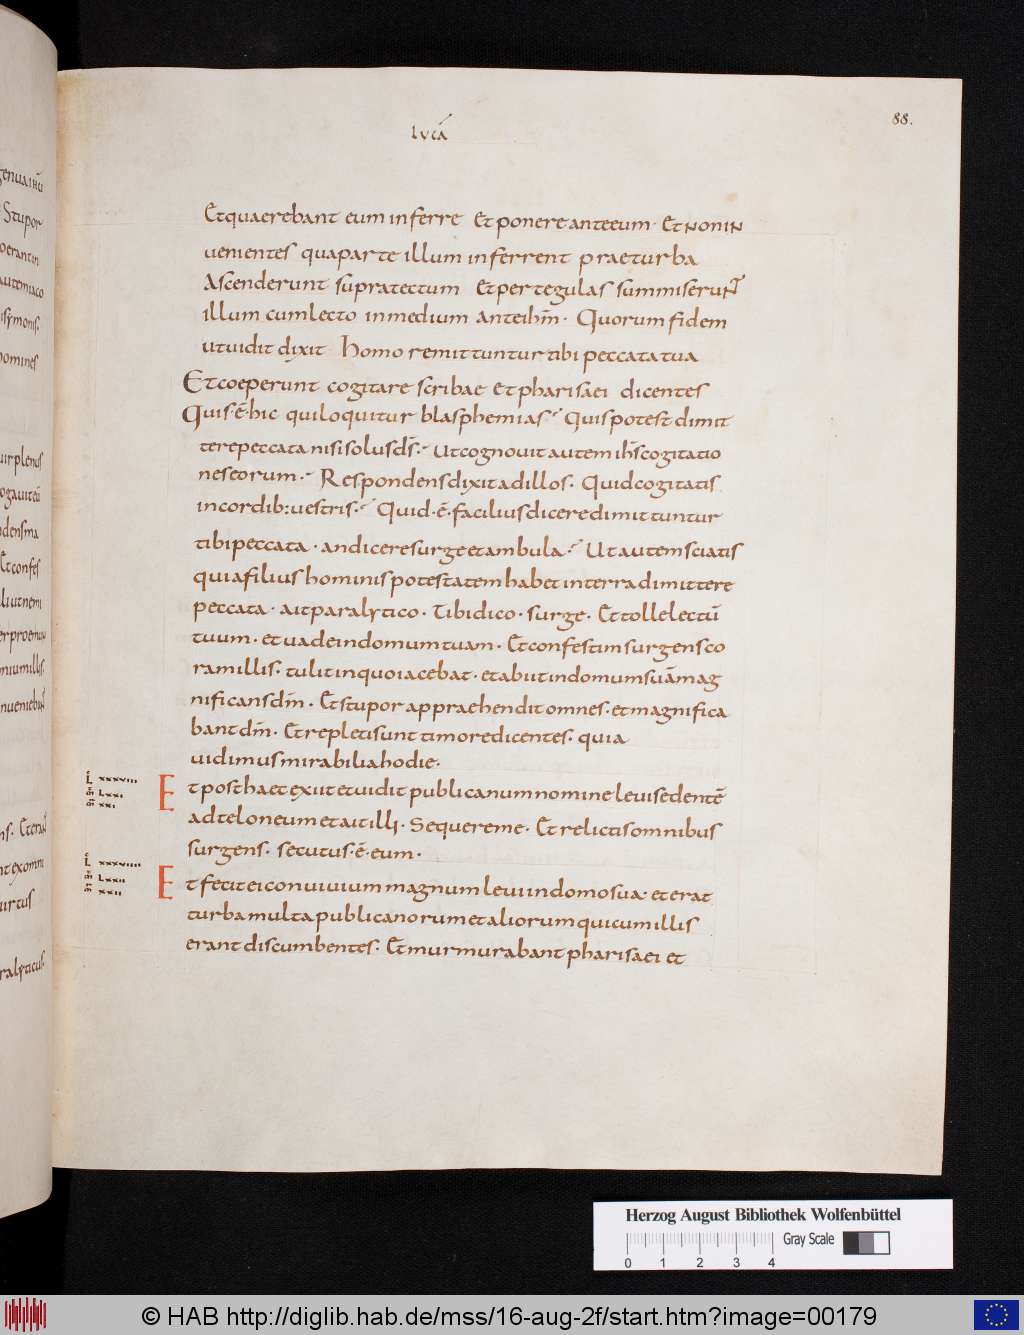 lucā
88.
Et quaerebant eum inferre Et ponere ante eum · Et non in
uenientes qua parte illum inferrent prae turba
Ascenderunt supra tectum Et per tegulas summiserunt
illum cum lecto in medium ante ihm̄ · Quorum fidem
ut uidit dixit Homo remittuntur tibi peccata tua
Et coeperunt cogitare scribae et pharisaei dicentes
Quis · ē · hic qui loquitur blasphemias · Quis potest dimit
tere peccata nisi solus ds̄ · Ut cognouit autem ihs̄ cogitatio
nes eorum · Respondens dixit ad illos · Quid cogitatis
in cordib: uestris · Quid · ē · facilius dicere dimittuntur
tibi peccata · an dicere surge et ambula · Ut autem sciatis
quia filius hominis potestatem habet in terra dimittere
peccata · ait paralytico · Tibi dico · surge · Et tolle lectū
tuum · et uade in domum tuam · Et confestim surgens co
ram illis · tulit in quo iacebat · et abiit in domum suam mag
nificans dm̄ · Et stupor appraehendit omnes · et magnifica
bant dm̄ · Et repleti sunt timore dicentes · quia
uidimus mirabilia hodie ·
L xxxviii
m̄ Lxxi
m̄ xxi
Et post haec exiit et uidit publicanum nomine leui sedentē
ad teloneum et ait illi · Sequere me · Et relictis omnibus
surgens · secutus · ē · eum ·
L xxxviiii
m̄ Lxxii
m̄ xxii
Et fecit ei conuiuium magnum leui in domo sua · et erat
turba multa publicanorum et aliorum qui cum illis
erant discumbentes · Et murmurabant pharisaei et
Herzog August Bibliothek Wolfenbüttel
Gray Scale
0 1 2 3 4
© HAB http://diglib.hab.de/mss/16-aug-2f/start.htm?image=00179